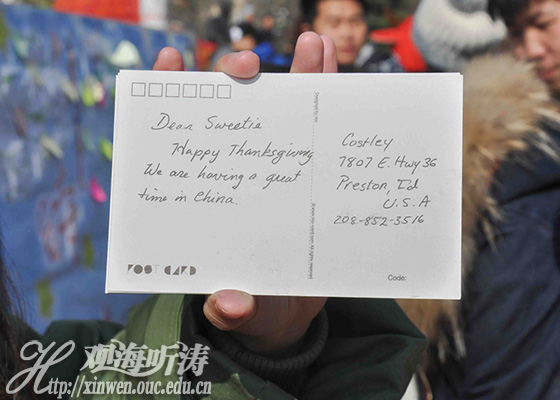 Dear Sweetie
Happy Thanksgiving
We are having a great
time in China.
POST CARD
Costley
7807 E. Hwy 36
Preston, Id
U.S.A
208-852-3516
Code:
观海听涛
Http://xinwen.ouc.edu.cn